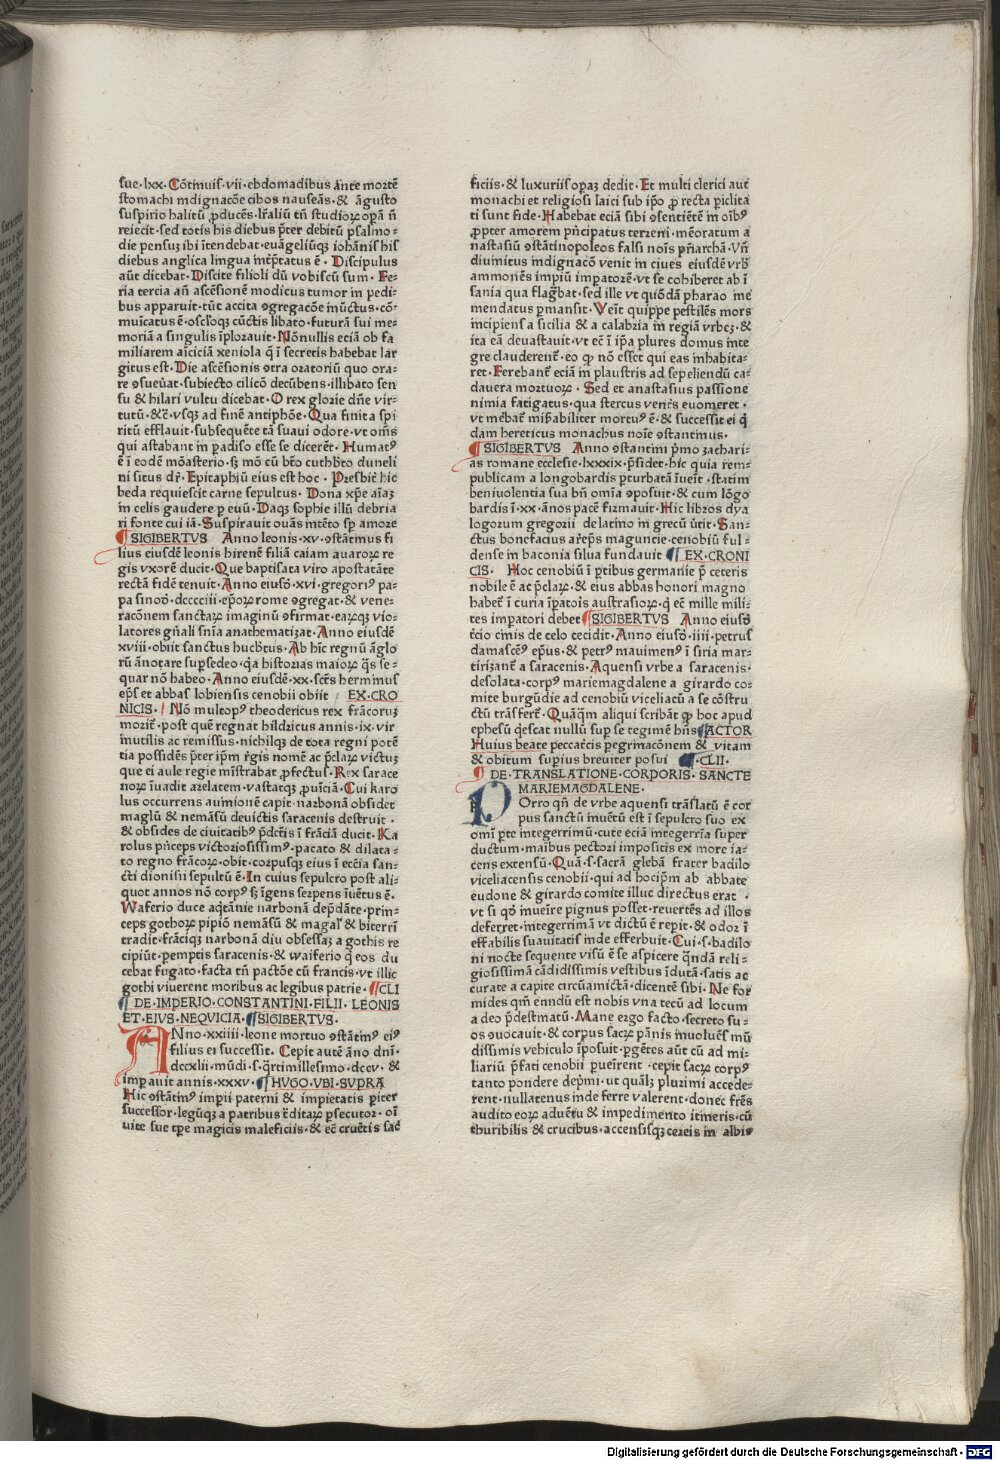 sue·lxx·Cōtinuis·vii·ebdomadibus ante mortē
stomachi indignacōe cibos nauseās·& āgusto
suspirio halitū ꝓducēs·lr̄aliū tn̄ studioꝝ opā n̄
reiecit·sed totis his diebus pter debitū psalmo-
die pensuȝ ibi ītendebat·euāgeliūqȝ iohānis his
diebus anglica lingua inteꝛptatus ē· Discipulus
aūt dicebat·Discite filioli dū vobiscū sum· Fe-
ria tercia an̄ ascēsionē modicus tumor in pedi-
bus apparuit·tūc accita ꝯgregacōe mūctus·cō-
muīcatus ē·osc̄loqȝ cūctis libato·futurā sui me-
moriā a singulis īplorauit·Nōnullis eciā ob fa
miliarem aīciciā xeniola q̄ ī secretis habebat lar
gitus est·Die ascēsionis ꝯtra oratoriū quo ora-
re ꝯsueūat·subiecto cilicō decūbens·illibato sen
su & hilari vultu dicebat·O rex glorie dn̄e vir-
tutū·&c̄·vsqȝ ad finē antiphōe·Qua finita spi
ritū efflauit·subsequēte tā suaui odore·vt om̄s
qui astabant in padiso esse se dicerēt·Humatꝰ
ē ī eodē mōasterio·sȝ mō cū bt̄o cuthb̄to duneli
ni situs dr̄·Epitaphiū eius est hoc·Presbit̄ hic
beda requiescit carne sepultus· Dona xp̄e aīaȝ
in celis gaudere p euū·Daqȝ sophie illū debria
ri fonte cui iā·Suspirauit ouās intēto sp amore
¶SIGIBERTVS Anno leonis·xv·ꝯstātinus fi
lius eiusdē leonis hirenē filiā caiam auaroꝝ re
gis vxorē ducit·Que baptisata viro apostatāte
rectā fidē tenuit·Anno eiusꝺ·xvi·gregoriꝰ pa-
pa sinoꝺ·dcccciii·ep̄oꝝ rome ꝯgregat·& vene-
racōnem sanctaꝝ imaginū ꝯfirmat·eaꝝqȝ vio-
latores gn̄ali sn̄ia anathematizat·Anno eiusdē
xviii·obiit sanctus hucb̄tus·Ab hīc regnū āglo
rū ānotare supsedeo·qa historias maioꝝ q̄s se-
quar nō habeo·Anno eiusdē·xx·scēs herminus
ep̄s et abbas lobiensis cenobii obiit EX·CRO
NICIS· Nō multopꝰ theodericus rex frācoruȝ
morit̄·post quē regnat hildricus annis·ix·vir
inutilis ac remissus·nichilqȝ de tota regni potē
tia possidēs pter ip̄m r̄gis nomē ac p̄claꝝ victuȝ
que ei aule regie mīstrabat ꝓfectus·Rex sarace
noꝝ īuadit arelatem·vastatqȝ ꝓuīciā·Cui karo
lus occurrens auinionē capit·narbonā obsidet
maglū & nemāsū deuictis saracenis destruit·
& obsides de ciuitatibꝰ p̄dictis ī frāciā ducit·Ka
rolus pn̄ceps victoriosissimꝰ·pacato & dilata-
to regno frācoꝝ·obit·corpusqȝ eius ī ecc̄ia san-
cti dionisii sepultū ē·In cuius sepulcro post ali-
quot annos nō corpꝰ sȝ īgens serpens īuētus ē·
Waferio duce aqtānie narbonā dep̄dāte·prin-
ceps gothoꝝ pipiō nemāsū & magal̄ & biterrī
tradit·frāciqȝ narbonā diu obsessaȝ a gothis re
cipiūt·pemptis saracenis·& waiferio q̄ eos du
cebat fugato·facta tn̄ pactōe cū francis·vt illic
gothi viuerent moribus ac legibus patrie·¶CLI
¶DE·IMPERIO·CONSTANTINI·FILII·LEONIS
ET·EIVS·NEQVICIA·¶SIGIBERTVS·
ANno·xxiiii·leone mortuo ꝯstātinꝰ eiꝰ
filius ei successit· Cepit autē āno dn̄i·
dccxlii·mūdi·s·q̄rtimillesimo·dccv·&
impauit annis·xxxv·¶HVGO·VBI·SVPRA
Hic ꝯstātinꝰ impii paterni & impietatis piter
successor·legūqȝ a patribus t̄ditaꝝ psecutor·oī
uite sue tpe magicis maleficiis·& ec̄ cruētis sac̄
ficiis·& luxuriis opaȝ dedit·Et multi clerici aut
monachi et religiosi laici sub ip̄o ꝓ recta piclita
ti sunt fide·Habebat eciā sibi ꝯsentiētē in oībꝰ
ꝓpter amorem pn̄cipatus terreni·mēoratum a
nastasiū ꝯstātinopoleos falsi noīs pr̄iarchā·Vn̄
diuinitus indignacō venit in ciues eiusdē vrb̄
ammonēs impiū impatorē·vt se cohiberet ab ī
sania qua flagr̄bat·sed ille vt quōdā pharao ine
mendatus pmansit·Veīt quippe pestilēs mors
incipiens a sicilia & a calabria in regiā vrbeȝ·&
ita eā deuastauit·vt ec̄ ī ip̄a plures domus inte
gre clauderent̄·eo ꝙ nō esset qui eas inhabita-
ret·Ferebant̄ eciā in plaustris ad sepeliendū ca-
dauera mortuoꝝ· Sed et anastasius passione
nimia fatigatus·qua stercus ventris euomeret·
vt mebat̄ mirabiliter mortuꝰ ē·& successit ei q̄
dam hereticus monachus noīe ꝯstantinus·
¶SIGIBERTVS Anno ꝯstantini pmo zachari-
as romane ecclesie·lxxxix·psidet·hic quia rem-
publicam a longobardis pturbatā īueīt·statim
beniuolentia sua bn̄ omīa ꝯposuit·& cum lōgo
bardis ī·xx·ānos pacē firmauit·Hic libros dya
logorum gregorii de latino in grecū ūtit·San-
ctus bonefacius arēps maguncie·cenobiū ful-
dense in baconia silua fundauit ¶EX·CRONI
CIS· Hoc cenobiū ī ptibus germanie p ceteris
nobile ē ac p̄claꝝ·& eius abbas honori magno
habet̄ ī curia īpatois austrasioꝝ·q̄ ec̄ mille mili-
tes impatori debet ¶SIGIBERTVS Anno eiusꝺ
tcio cinis de celo cecidit·Anno eiusꝺ·iiii·petrus
damascēꝰ ep̄us·& petrꝰ mauimenꝰ ī siria mar-
tirizant̄ a saracenis·Aquensi vrbe a saracenis·
desolata·corpꝰ mariemagdalene a girardo co-
mite burgūdie ad cenobiū viceliacū a se cōstru
ctū trāsfert̄·Quāqm aliqui scribāt ꝙ hoc apud
ephesū q̄escat nullū sup se tegimē hn̄s ¶ACTOR
Huius beate peccatricis pegrinacōnem & vitam
& obitum supius breuiter posui ¶·CLII·
¶DE·TRANSLATIONE·CORPORIS·SANCTE
MARIEMAGDALENE·
POrro qn̄ de vrbe aquensi trāslatū ē cor
pus sanctū inuētū est ī sepulcro suo ex
omī pte integerrimū·cute eciā integerrīa super
ductum·maībus pectori impositis ex more ia-
cens extensū·Quā·s·sacrā glebā frater badilo
viceliacensis cenobii·qui ad hocipm ab abbate
eudone & girardo comite illuc directus erat·
vt si qꝺ inueīre pignus posset·reuertēs ad illos
deferret·integerrimā vt dictū ē repit·& odor ī
effabilis suauitatis inde efferbuit·Cui·s·badilo
ni nocte sequente visū ē se aspicere q̄ndā reli-
giosissimā cādidissimis vestibus īdutā·satis ac
curate a capite circūamictā·dicentē sibi·Ne for
mides qm̄ eundū est nobis vna tecū ad locum
a deo pdestinatū·Mane ergo facto·secreto su-
os ꝺuocauit·& corpus sacꝝ pānis inuoluēs mū
dissimis vehiculo īposuit·pgētes aūt cū ad mi-
liariū pfati cenobii pueirent·cepit sacꝝ corpꝰ
tanto pondere depmi·ut quālȝ plurimi accede-
rent·nullatenus inde ferre valerent·donec frēs
audito eoꝝ aduētu & impedimento itineris·cū
thuribilis & crucibus·accensisqȝ cereis in albis
Digitalisierung gefördert durch die Deutsche Forschungsgemeinschaft - DFG